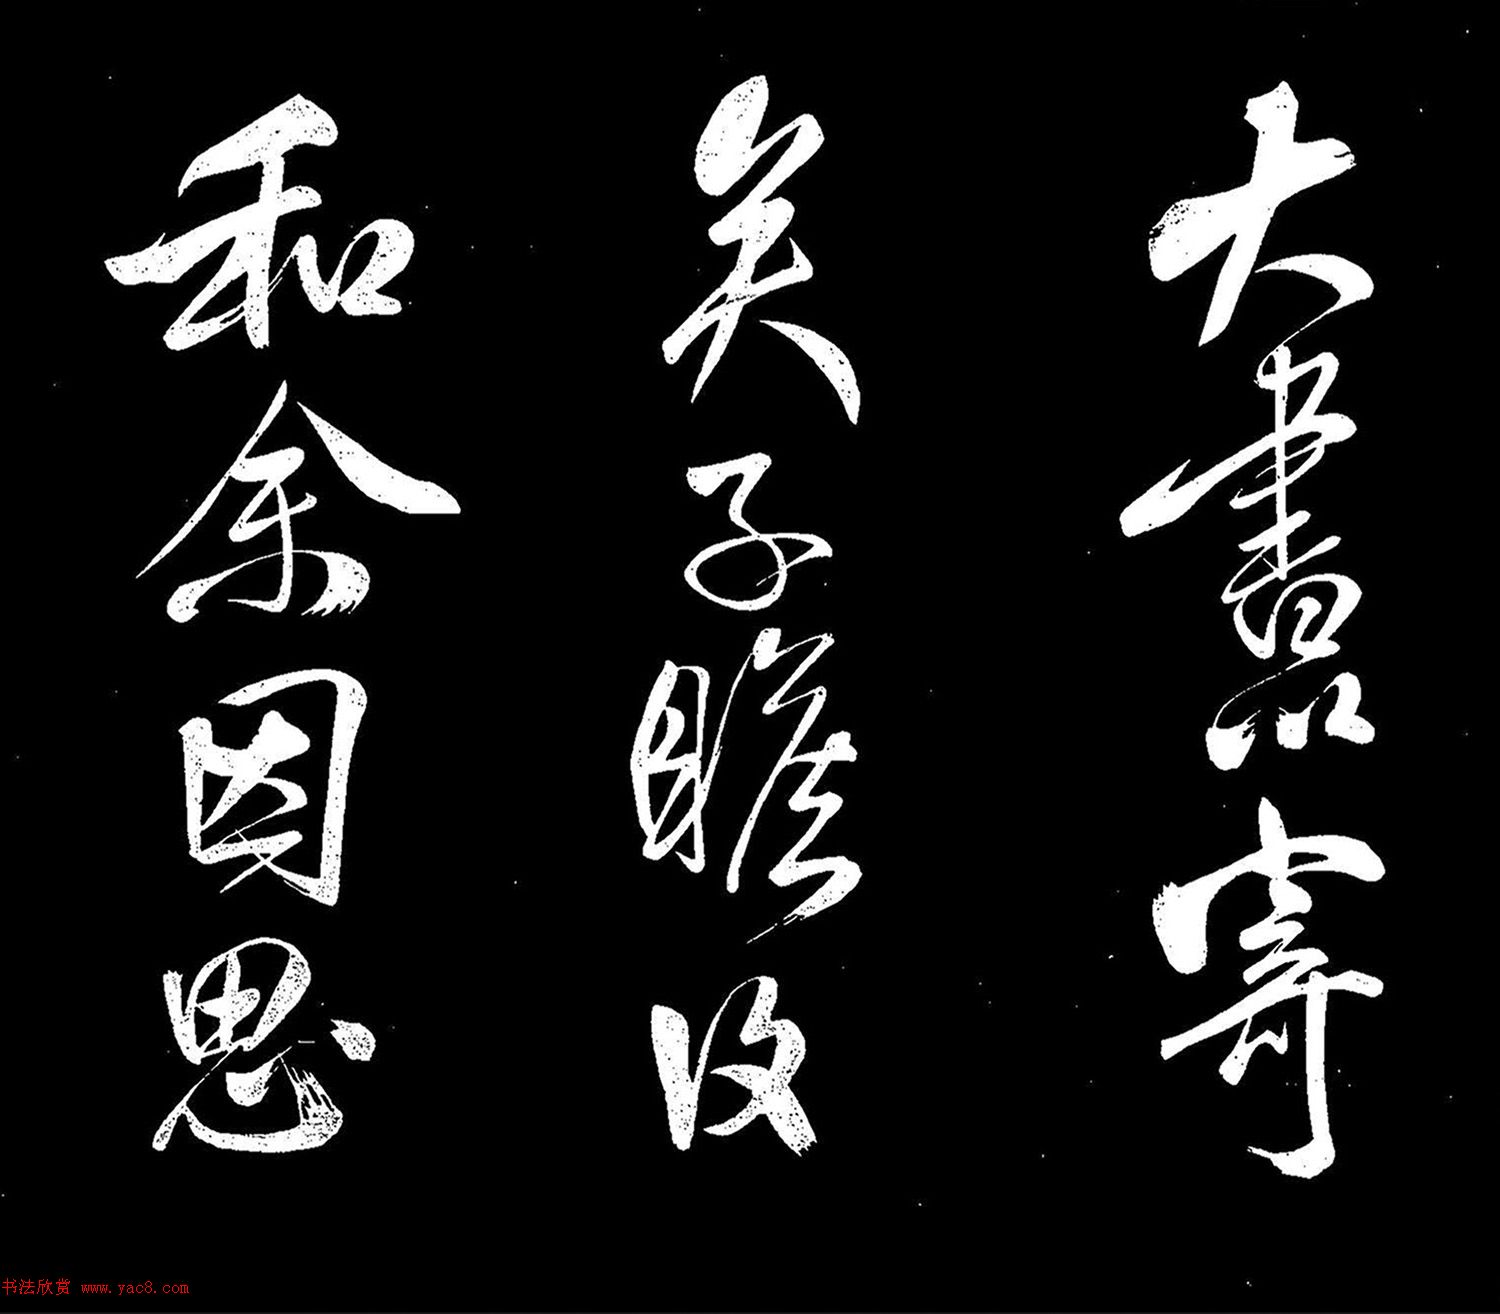 大書以寄
矣子瞻收
和余因思
书法欣赏 www.yac8.com